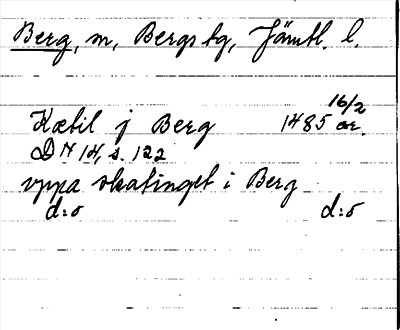 Berg, m, Bergs tg, Jämtl. l.
16/2
Kætil j Berg 1485 or.
DN 14, s. 122
vppa skatinget i Berg
d:o d:o